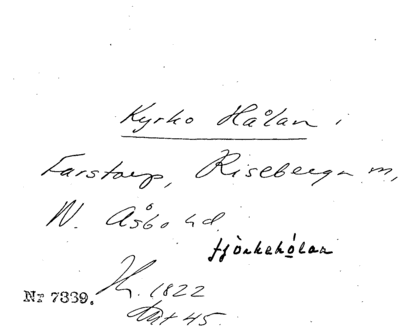 Kyrko Hålan i
Farstorp, Riseberga m,
N. Åsbo hd.
fjörkehólan
Nr 7339.
H. 1822
45.